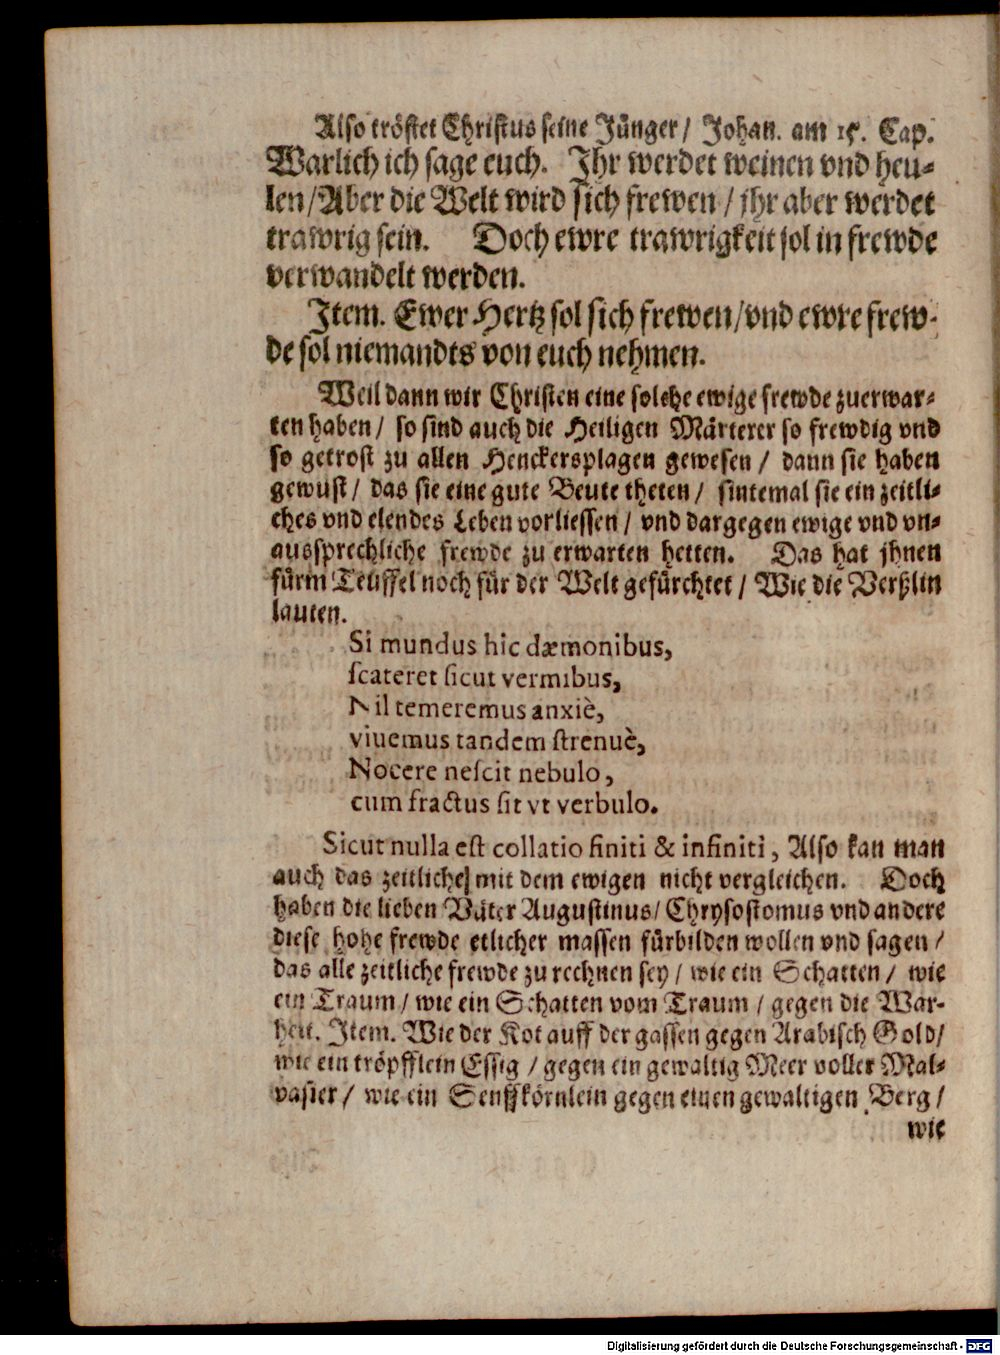 Also tröstet Christus seine Jünger/ Johan. am 15. Cap.
Warlich ich sage euch. Ihr werdet weinen vnd heu-
len/Aber die Welt wird sich frewen/ jhr aber werdet
trawrig sein. Doch ewre trawrigkeit sol in frewde
verwandelt werden.
Item. Ewer Hertz sol sich frewen/vnd ewre frew-
de sol niemandts von euch nehmen.
Weil dann wir Christen eine solche ewige frewde zuerwar-
ten haben/ so sind auch die Heiligen Märterer so frewdig vnd
so getrost zu allen Henckersplagen gewesen/ dann sie haben
gewust/ das sie eine gute Beute theten/ sintemal sie ein zeitli-
ches vnd elendes Leben vorliessen/ vnd dargegen ewige vnd vn-
aussprechliche frewde zu erwarten hetten. Das hat jhnen
fürm Teuffel noch für der Welt gefürchtet/ Wie die Verßlin
lauten.
Si mundus hic dæmonibus,
ſcateret ſicut vermibus,
Nil temeremus anxiè,
viuemus tandem ſtrenuè,
Nocere neſcit nebulo,
cum fractus ſit vt verbulo.
Sicut nulla eſt collatio finiti & infiniti, Also kan man
auch das zeitliche mit dem ewigen nicht vergleichen. Doch
haben die lieben Väter Augustinus/ Chrysostomus vnd andere
diese hohe frewde etlicher massen fürbilden wollen vnd sagen/
das alle zeitliche frewde zu rechnen sey/ wie ein Schatten/ wie
ein Traum/ wie ein Schatten vom Traum/ gegen die War-
heit. Item. Wie der Kot auff der gassen gegen Arabisch Gold/
wie ein tröpfflein Essig/ gegen ein gewaltig Meer voller Mal-
vasier/ wie ein Senffkörnlein gegen einen gewaltigen Berg/
wie
Digitalisierung gefördert durch die Deutsche Forschungsgemeinschaft - DFG